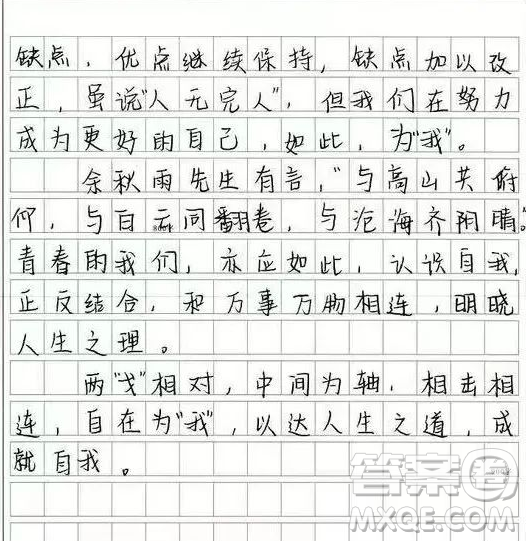 缺点，优点继续保持，缺点加以改
正，虽说"人无完人"，但我们在努力
成为更好的自己，如此，为"我"。
余秋雨先生有言，"与高山共俯
仰，与白云同翻卷，与沧海齐阴晴"。
青春的我们，亦应如此，认识自我，
正反结合，和万事万物相连，明晓
人生之理。
两"戈"相对，中间为轴，相击相
连，自在为"我"，以达人生之道，成
就自我。
答案圈
MXQE.COM